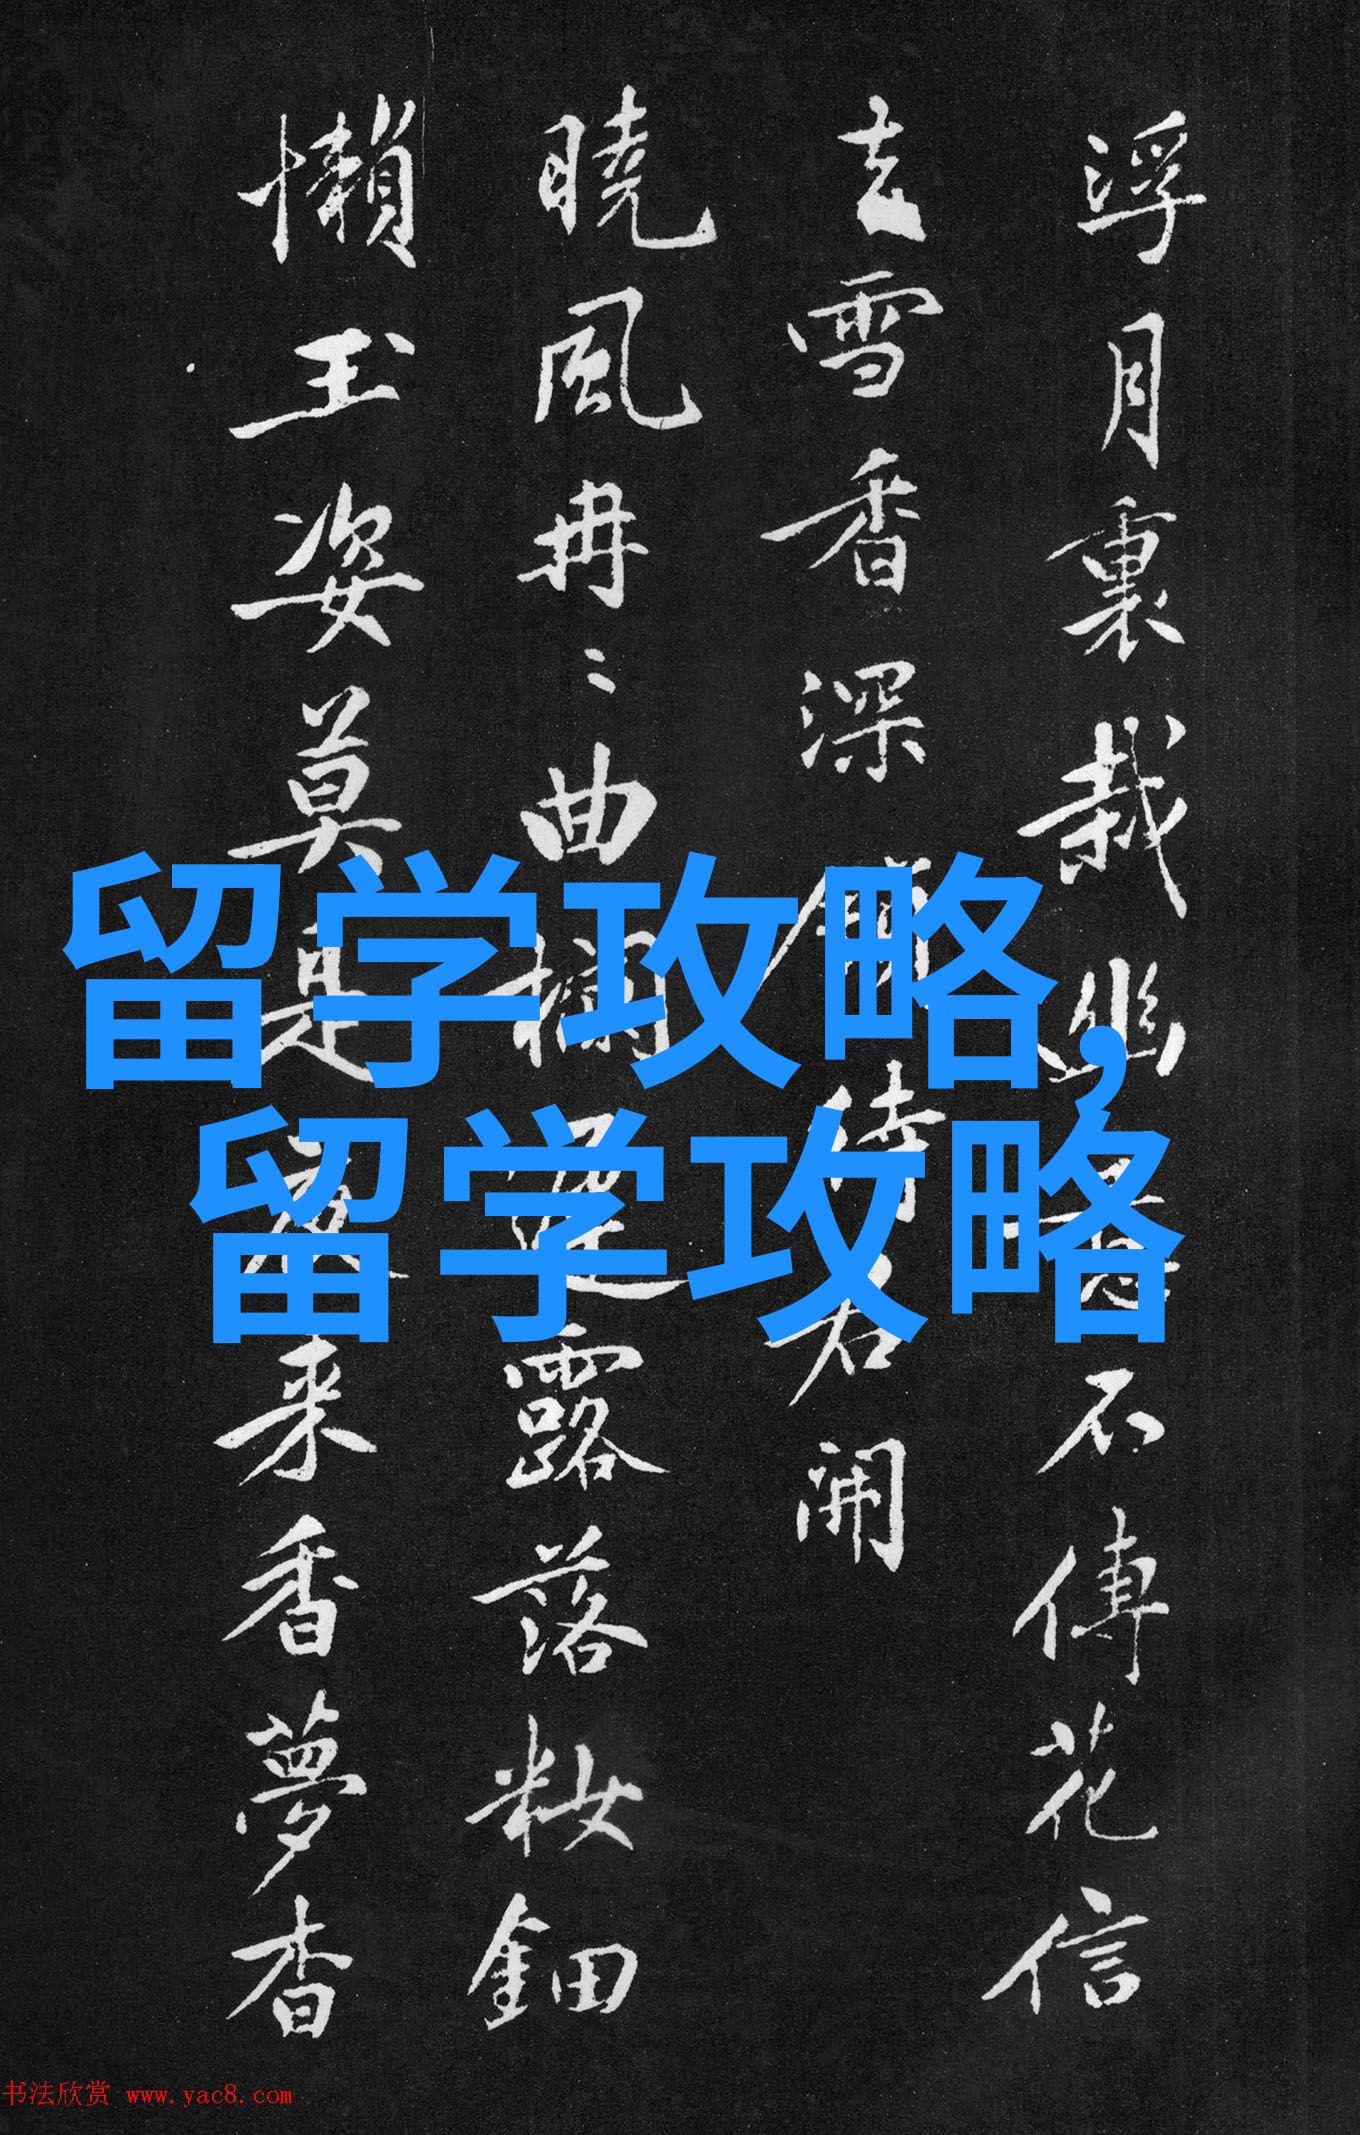 浮月裏栽幽不傳花信
去雪香深開
曉風冉〻曲欄露落粧鈿
懶玉姿莫是来香夢杳
留学攻略,
留学攻略
书法欣赏 www.yac8.com